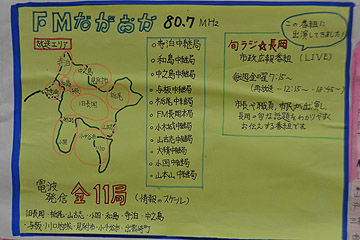 FMながおか 80.7 MHz
放送エリア
寺泊中継局
和島中継局
中之島中継局
与板中継局
栃尾中継局
FM長岡本局
小木城中継局
山古志中継局
大積中継局
小国中継局
山本山中継局
この番組に
出演してきました!
旬ラジ☆長岡
市政広報番組 (LIVE)
毎週金曜 7:15~
(再放送 - 12:15~
市長や職員、市民が出演し、
長岡の旬な話題をわかりやすく
お伝えする番組です
電波
発信 全11局 (情報のスケール)
旧長岡・栃尾・山古志・小国・和島・寺泊・中之島
・与板・川口地域・見附市・小千谷市・出雲崎町